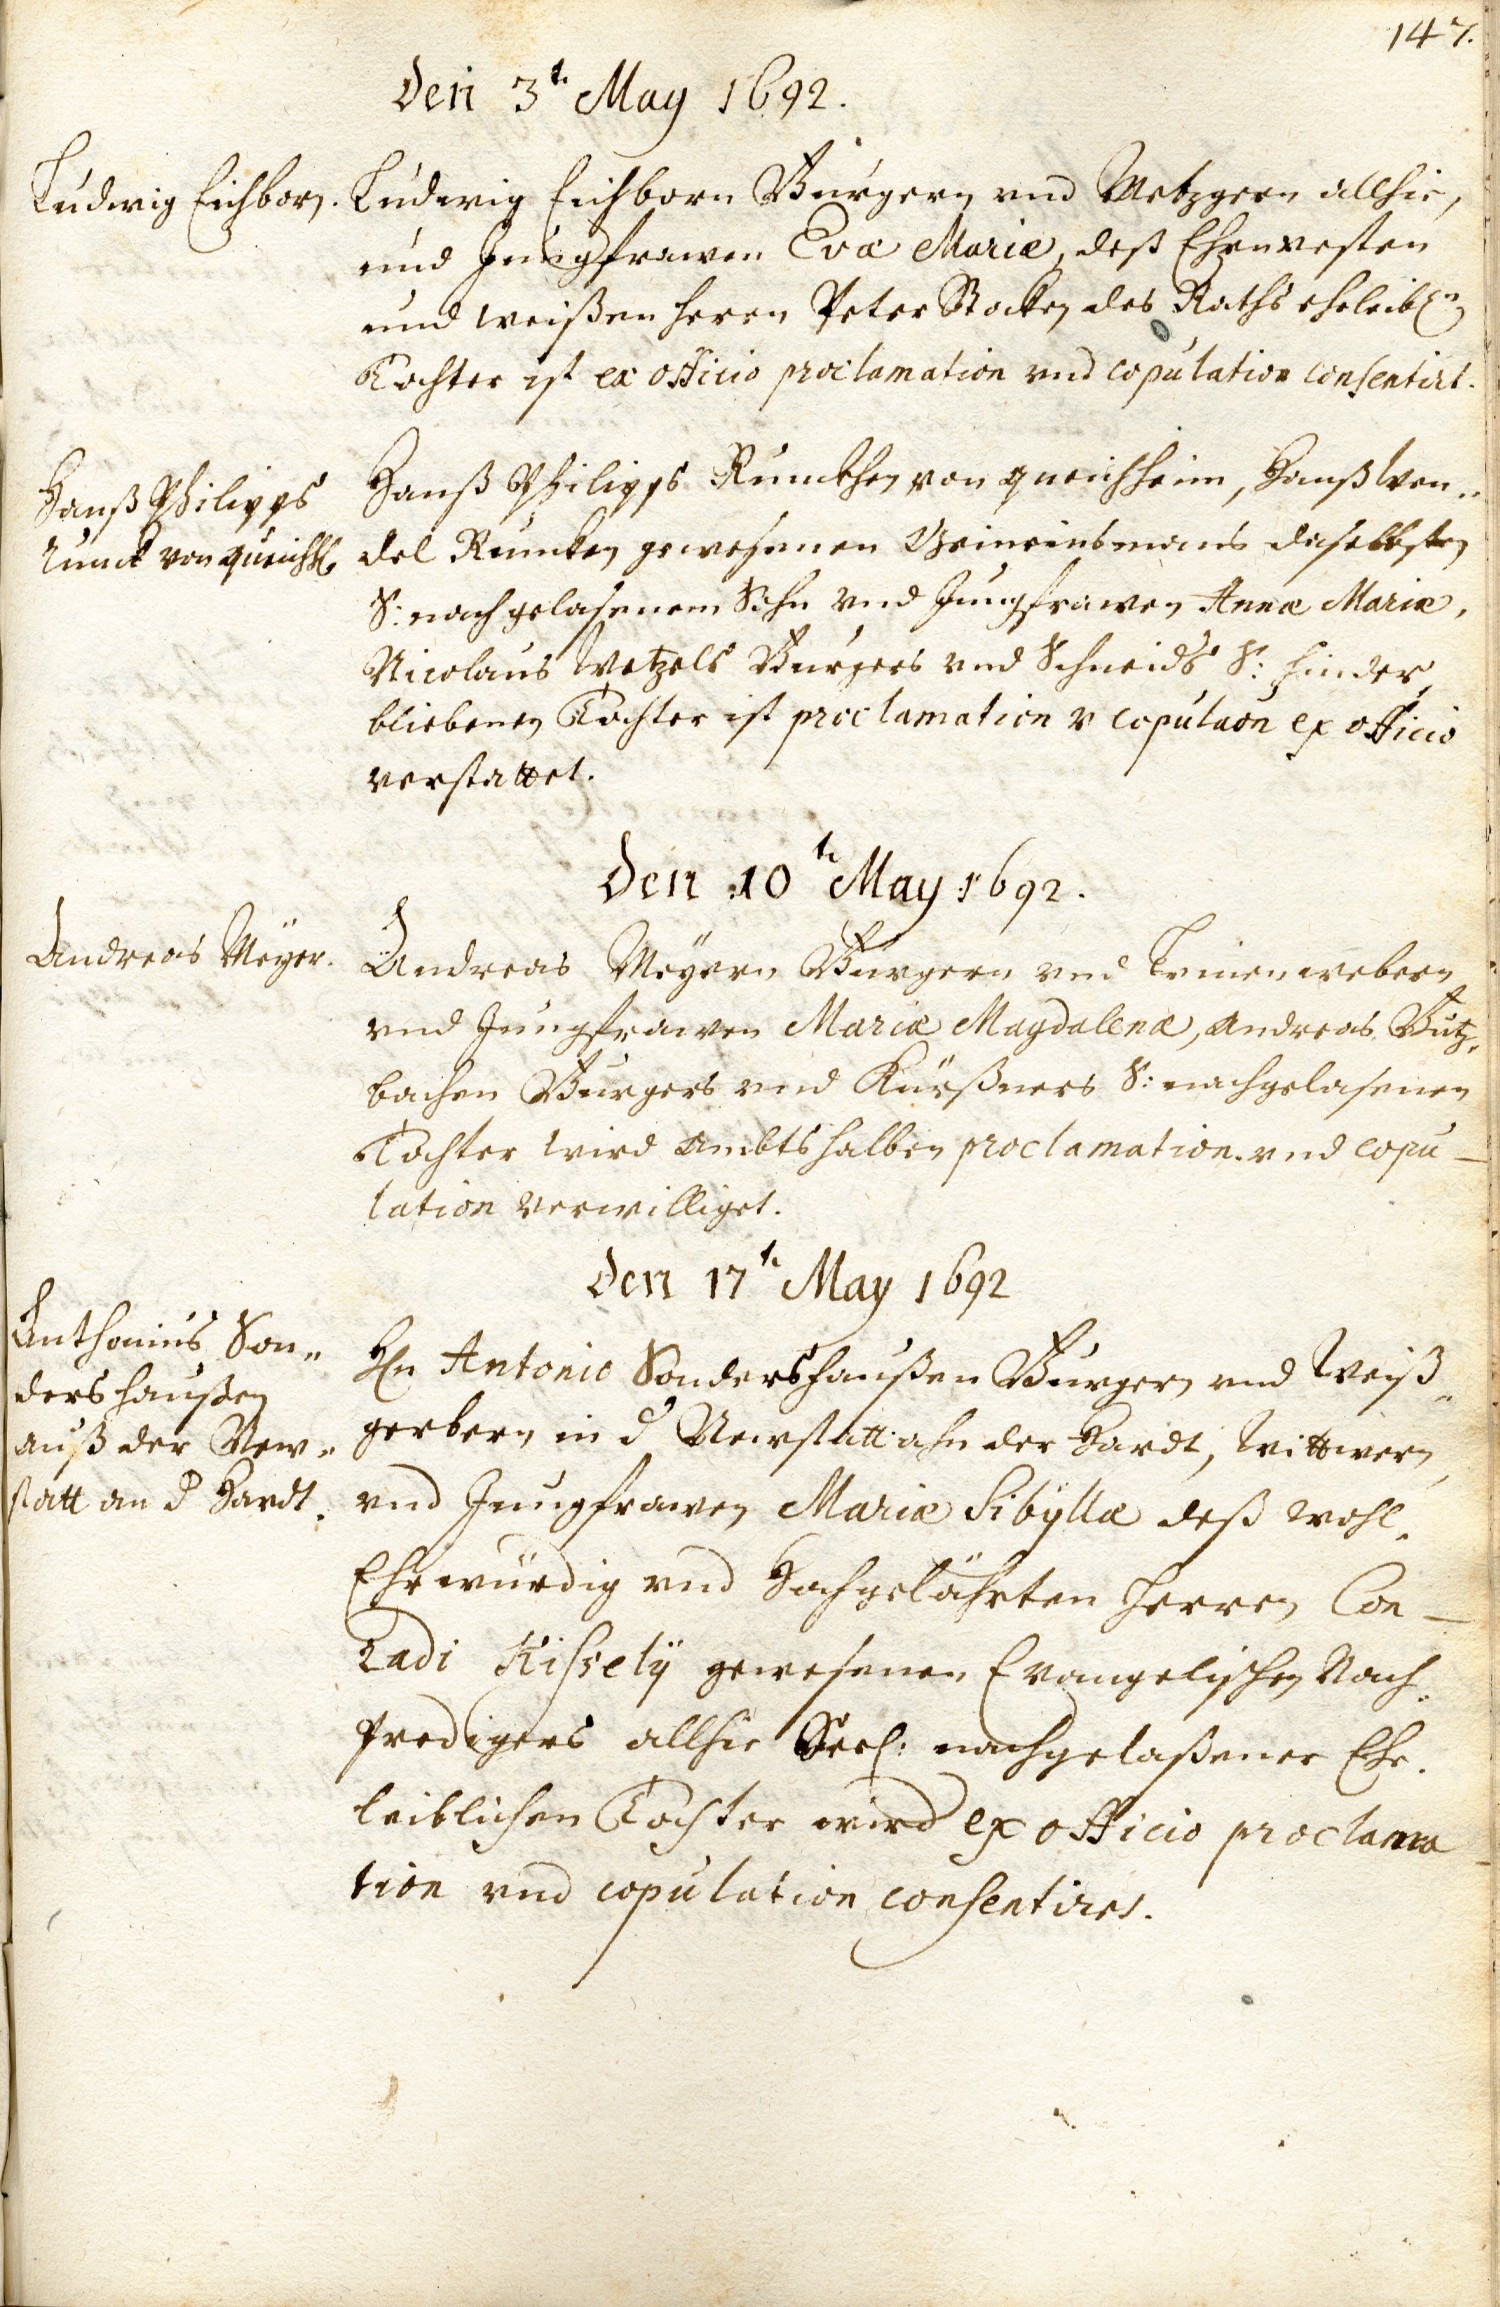 147.
Den 3t. May 1692.
Ludwig Eichborn.
Ludwig Eichborn Burgern vnd Metzgern allhie,
und Jungfrawen Evæ Mariæ, deß Ehrnvesten
und weißen Herrn Peter Stocken des Raths eheleibl:n
Tochter ist ex officio proclamation vnd copulation consentirt.
Hanß Philipps
Runck von Queichh.
Hanß Philipps Runckhen von Queichheim, Hanß Wen„
del Runcken gewesenen Gemeinsmans daselbsten
S: nachgelasenem Sohn vnd Jungfrawen Annæ Mariæ,
Nicolaus Wetzels Burgers vnd Schneiders S: hinder,
bliebenen Tochter ist proclamation v copulaon ex officio
verstattet.
Den 10t. May 1692.
Andreas Meÿer.
Andreas Meÿern Burgern vnd Leinenwebern
vnd Jungfrawen Mariæ Magdalenæ, Andreas Butz„
bachen Burgers vnd Kürßners S: nachgelasenen
Tochter wird Ambtshalben proclamation vnd copu–
lation verwilliget.
Den 17t. May 1692
Anthonius Son„
dershaußen
auß der New„
statt an d Hardt.
Hn Antonio Sondershaußen Burgern vnd Weiß„
gerbern in d Newstatt ahn der Hardt, Wittwern,
vnd Jungfrawen Mariæ Sibÿllæ deß Wohl„
Ehrwürdig vnd Hochgelährten Herren Con–
radi Kisselÿ gewesenen Evangelischen Nach„
predigers allhie Seel: nachgelaßener Ehe„
leiblichen Tochter wird ex officio proclama
tion vnd copulation consentiret.